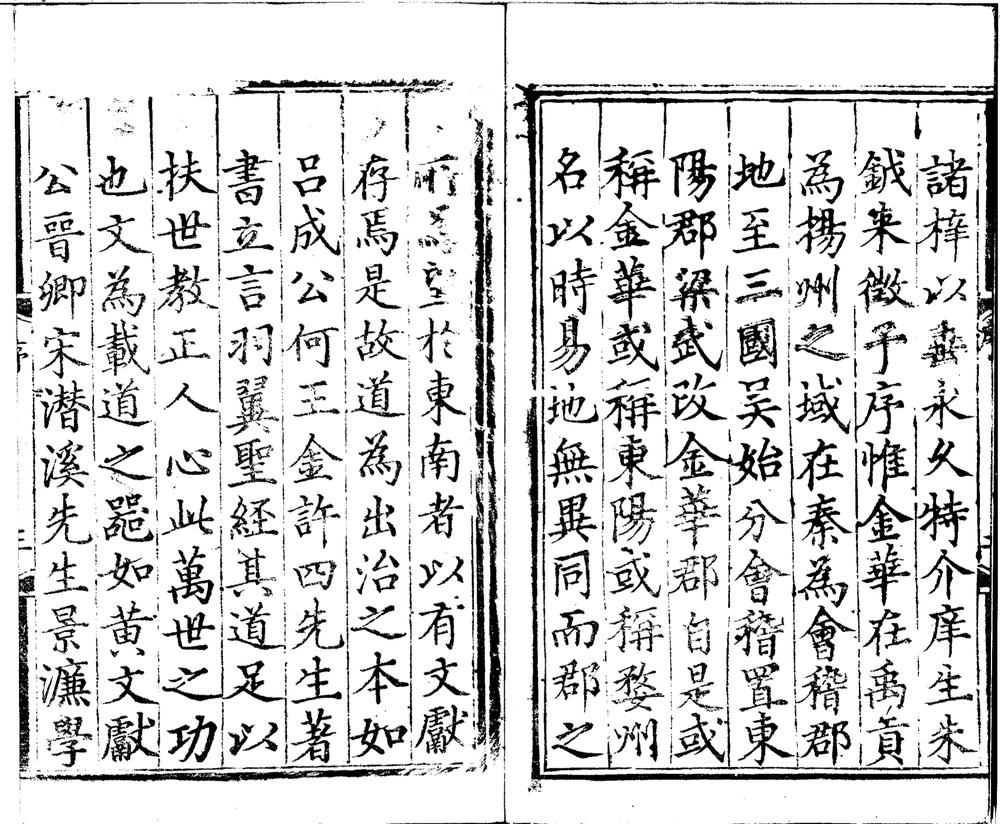 諸梓以壽永久特介庠生朱
鉞来徵予序惟金華在禹貢
為楊州之域在秦為會稽郡
地至三國吴始分會稽置東
陽郡梁武改金華郡自是或
稱金華或稱東陽或稱婺州
名以時易地無異同而郡之
所以望於東南者以有文獻
存焉是故道為出治之本如
吕成公何王金許四先生著
書立言羽翼聖經其道足以
扶世教正人心此萬世之功
也文為載道之噐如黄文獻
公晉卿宋潛溪先生景濂學
序